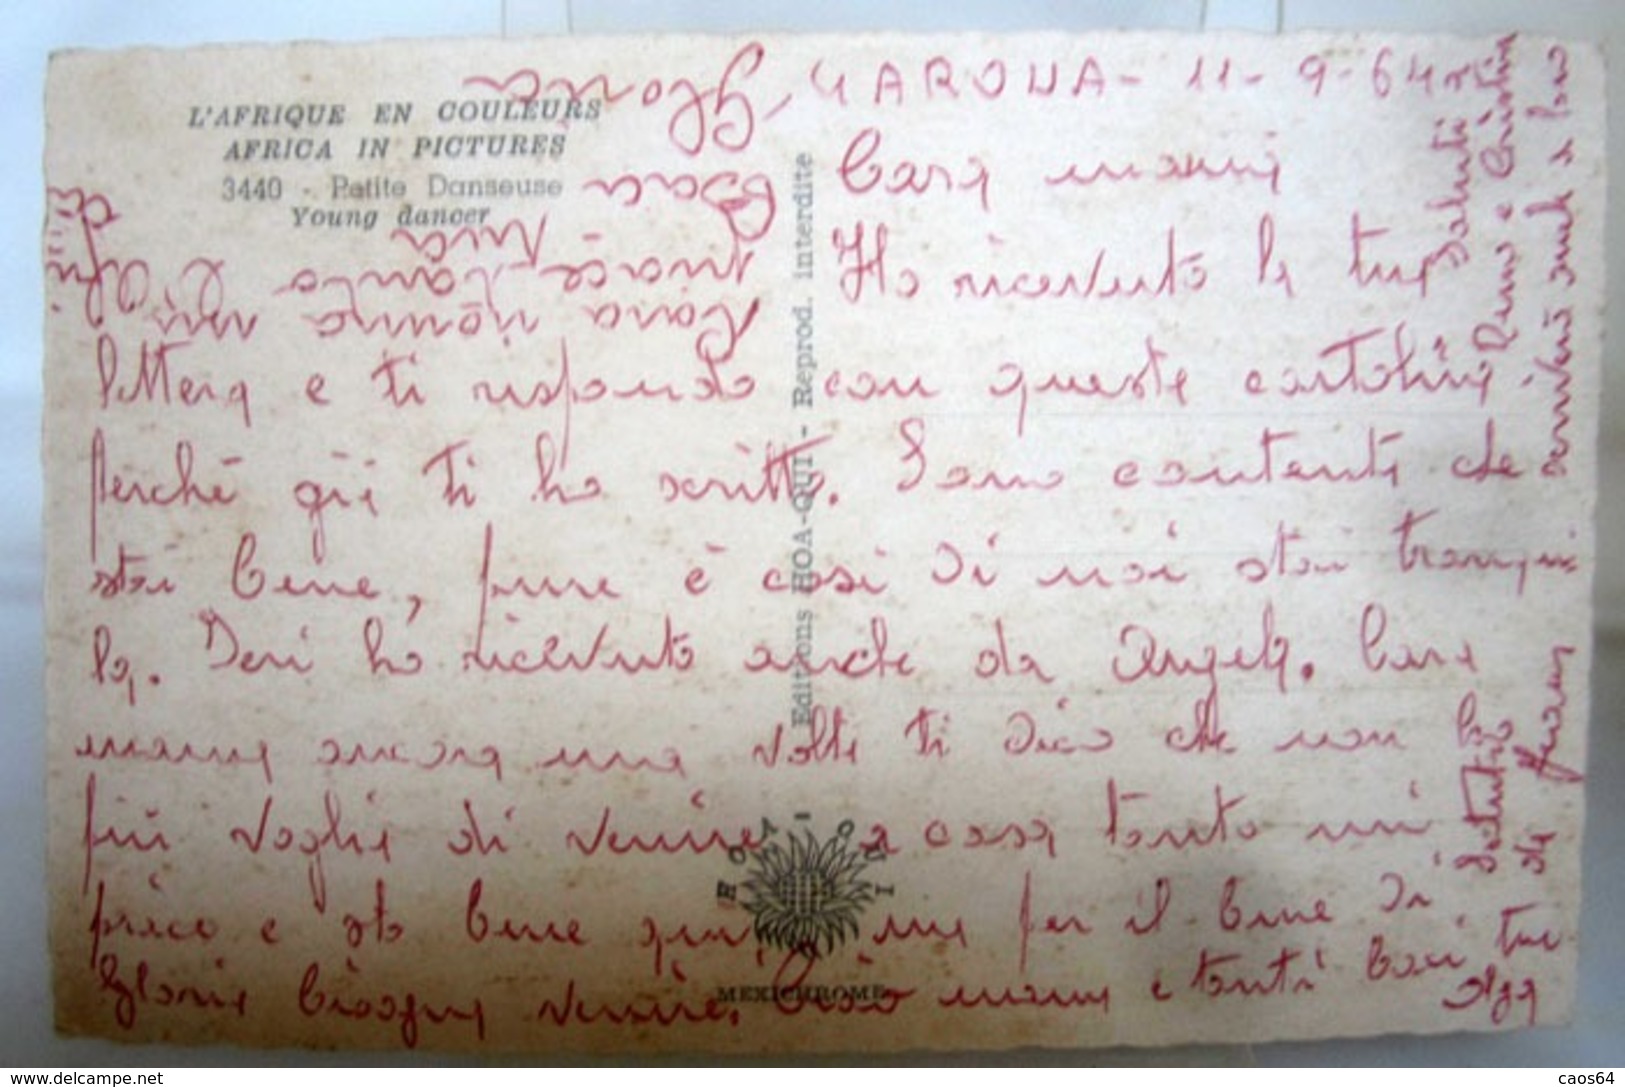 L'AFRIQUE EN COULEURS
AFRICA IN PICTURES
3440 - Petite Danseuse
Young dancer
Editions HOA-QUI - Reprod. interdite
HOA QUI
MEXICHROME
GAROUA - 11-9-64
Cara mamma
Ho ricevuto la tua
lettera e ti rispondo con questa cartolina
perché già ti ho scritto. Sono contenta che
stai bene, pure è così di noi stai tranqui
la. Ieri ho ricevuto anche da Angela. Cara
mamma ancora una volta ti dico che non ho
più voglia di venire a casa tanto mi
piace e sto bene qui, ma per il bene di
Gloria bisogna venire. Ciao mamma e tanti baci tua
Olga
Saluti
e Cristina
Saluta
da
Cara nonna
tanta
Gloria
www.delcampe.net
caos64